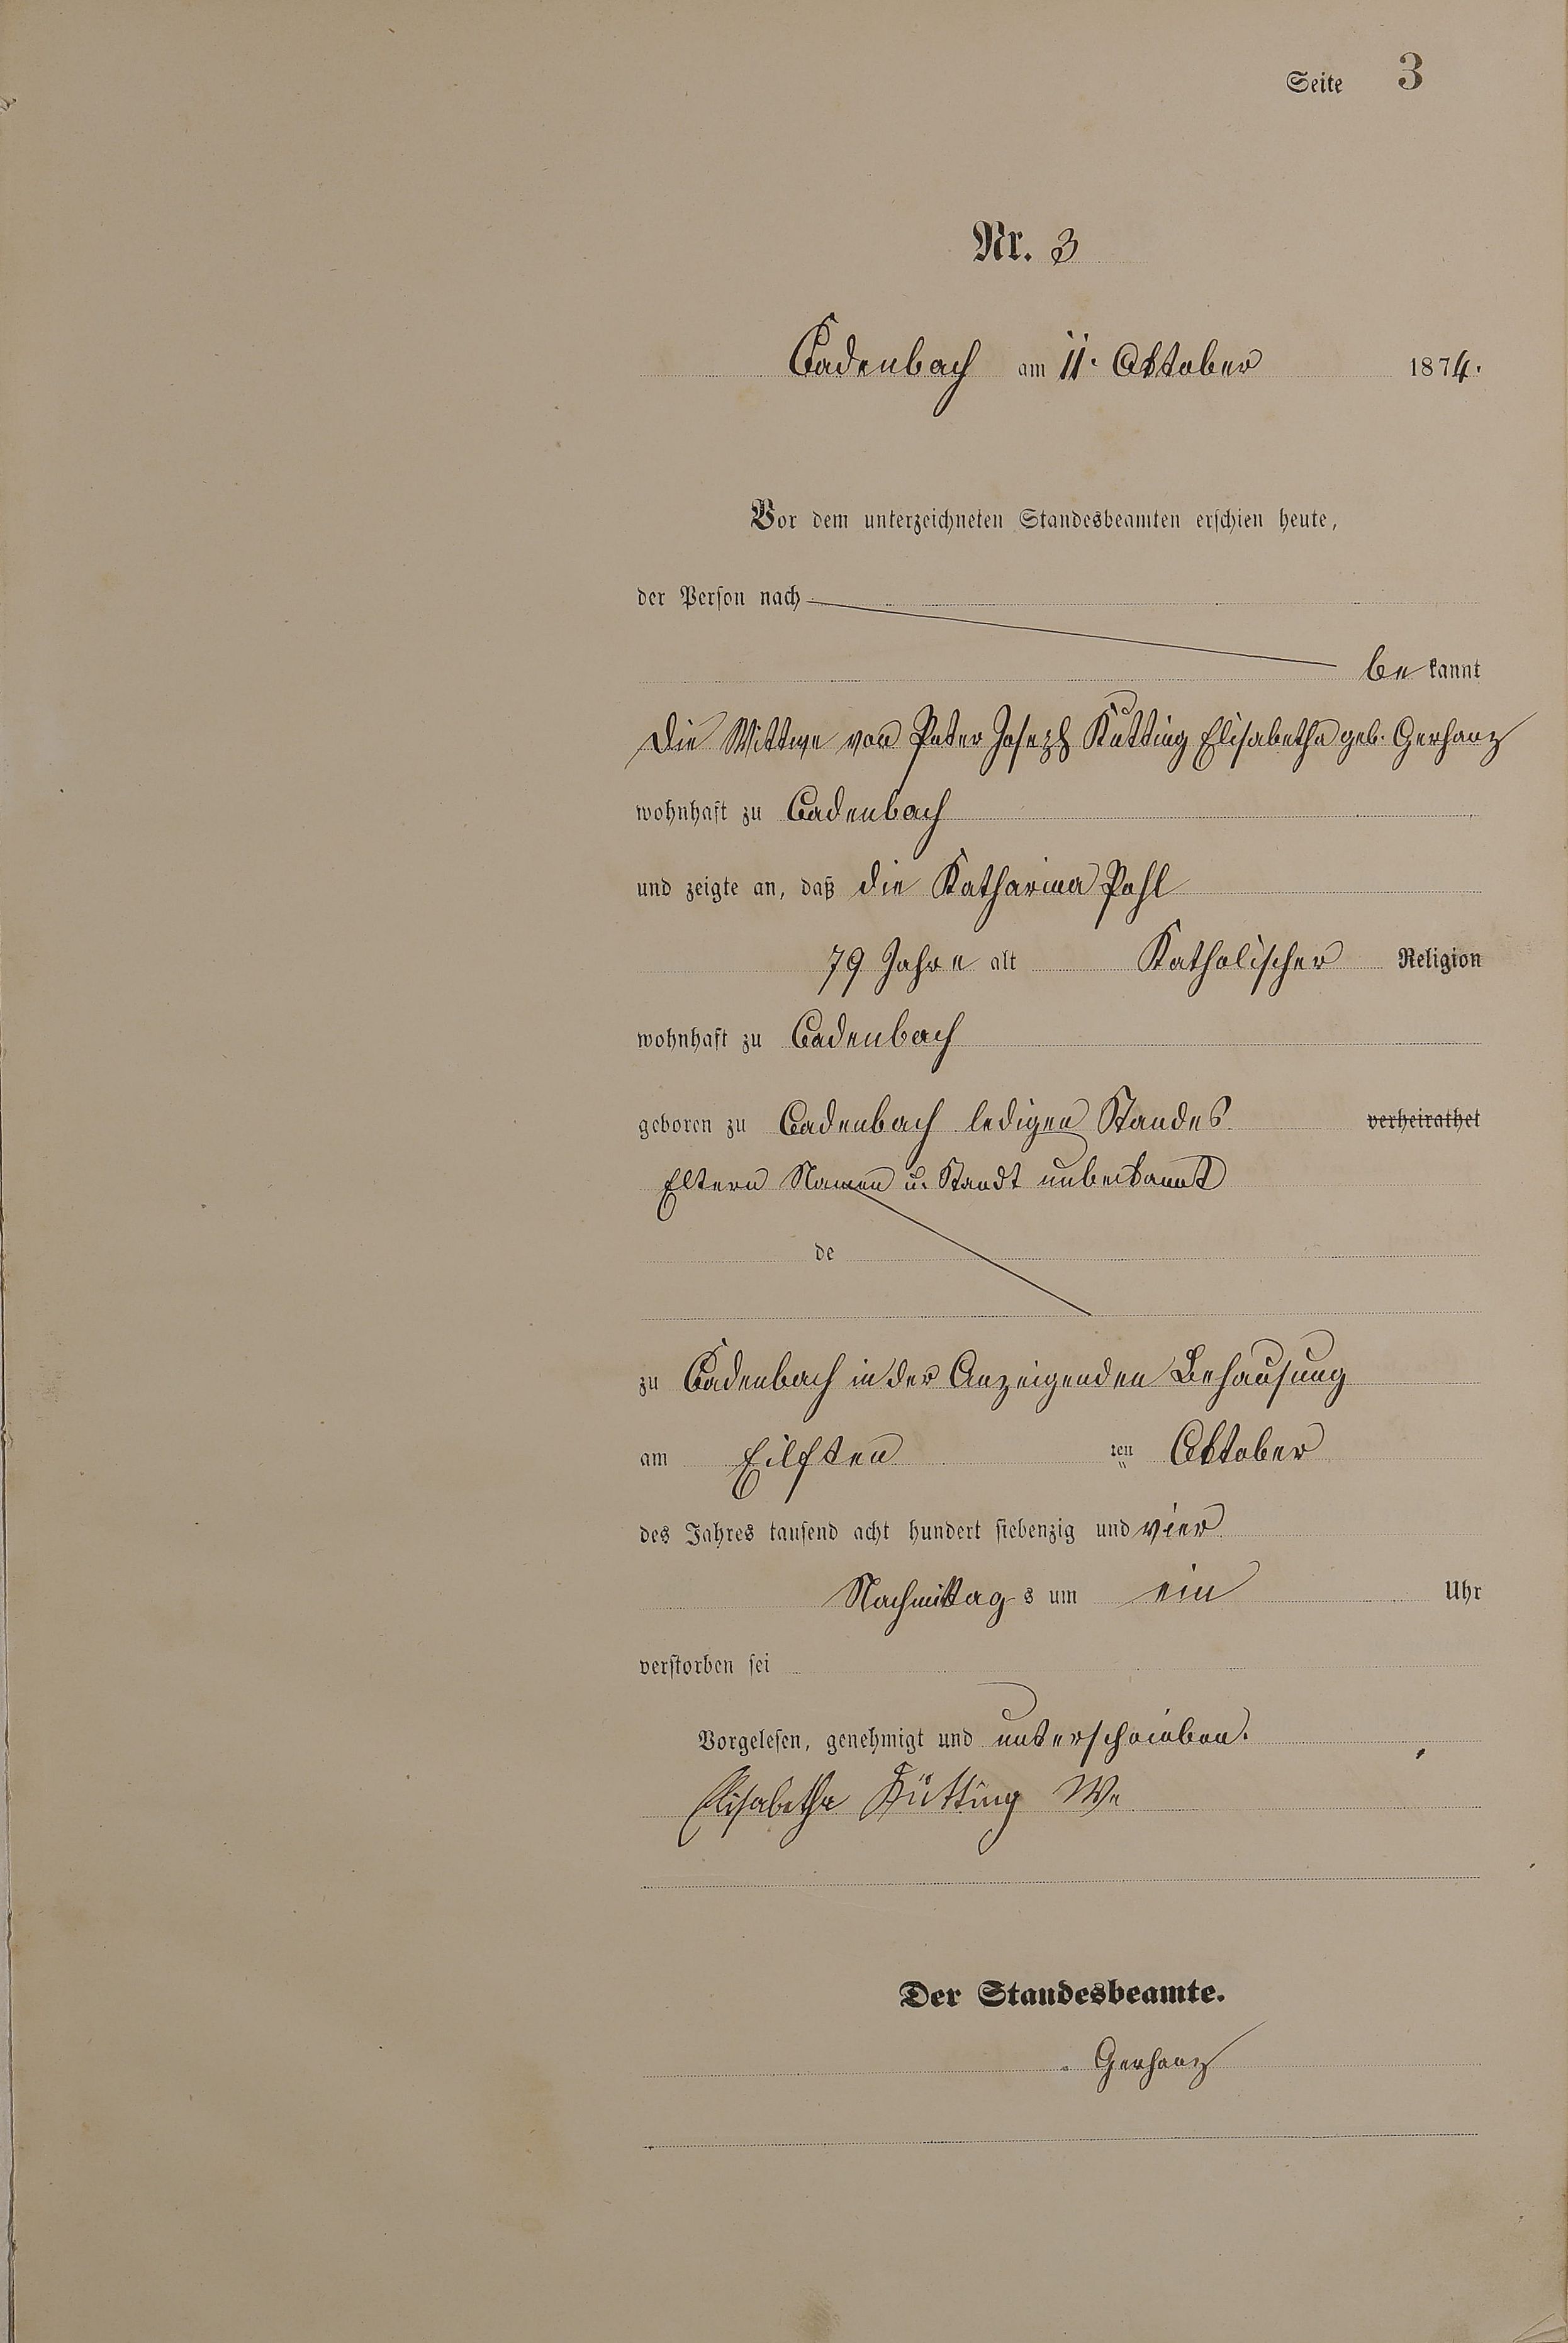 Seite 3
Nr. 3
Cadenbach am 11. Oktober 1874.
Vor dem unterzeichneten Standesbeamten erschien heute,
der Person nach
be kannt
die Wittwe von Peter Joseph Kütting Elisabetha geb. Gerhanz
wohnhaft zu Cadenbach
und zeigte an, daß die Katharina Pohl
79 Jahre alt Katholischer Religion
wohnhaft zu Cadenbach
geboren zu Cadenbach ledigen Standes verheirathet
Eltern Namen u. Standt unbekannt
de
zu Cadenbach in der Anzeigenden Behausung
am Eilften ten Oktober
des Jahres tausend acht hundert siebenzig und vier
Nachmittag s um ein Uhr
verstorben sei
Vorgelesen, genehmigt und unterschrieben.
Elisabetha Kütting We
Der Standesbeamte.
Gerhanz